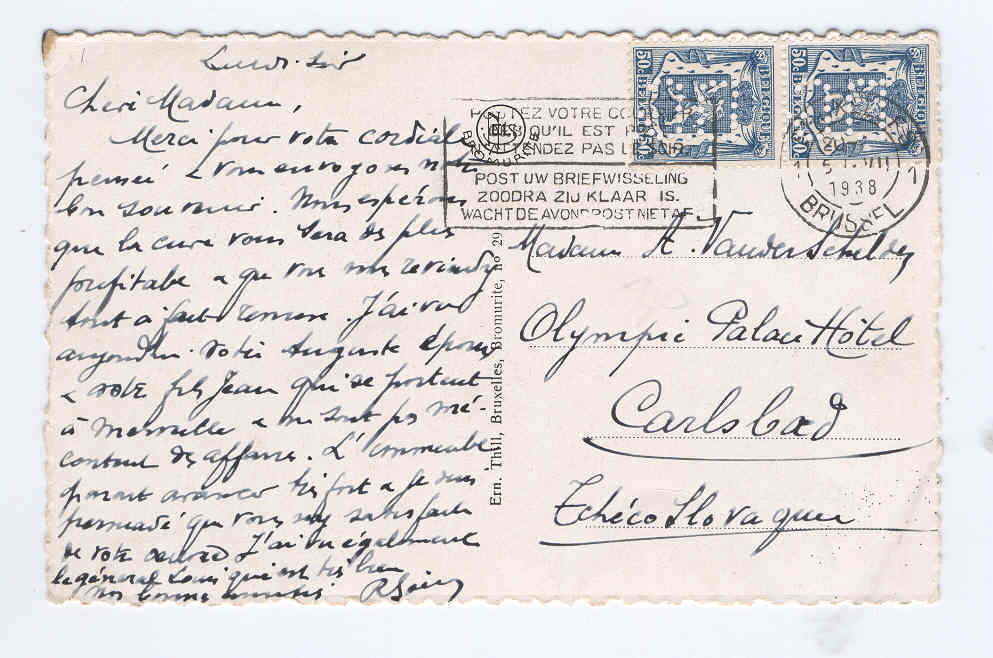 Lundi soir
Chère Madame,
Merci pour votre cordiale
pensée & vous envoyons notre
bon souvenir. Nous espérons
que la cure vous sera des plus
profitable & que vous nous reviendrez
tout à fait remise. J'ai vu
aujourd'hui votre Auguste époux
& votre fils Jean qui se portent
à merveille & ne sont pas mé-
content des affaires. L'immeuble
parait avancer très fort & je suis
persuadé que vous serez satisfaite
de votre J'ai vu également
le général Louis qui est très bien
nos bonnes amitiés
POSTEZ VOTRE COURRIER
DÈS QU'IL EST PRÊT
N'ATTENDEZ PAS LE SOIR
POST UW BRIEFWISSELING
ZOODRA ZIJ KLAAR IS.
WACHT DE AVONDPOST NIET AF
BROMURITE
50c BELGIQUE
50c BELGIQUE
VII
1938
BRUSSEL
1
Ern. Thill, Bruxelles, Bromurite, no 29
Madame A. Vanderschelden
Olympic Palace Hôtel
Carlsbad
Tchéco Slovaquie